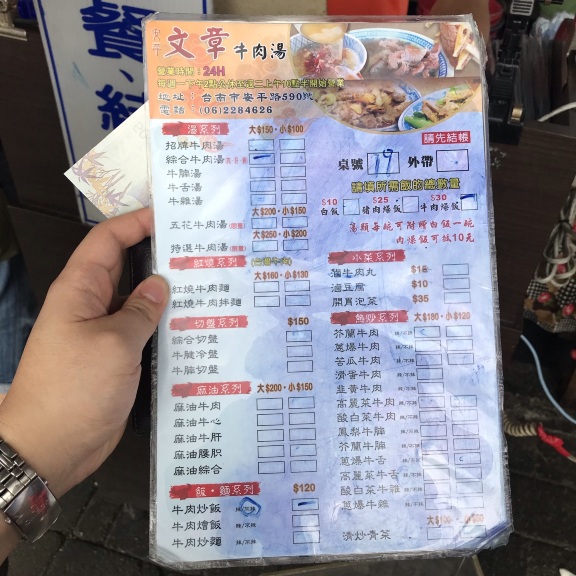 餐
文章牛肉湯
營業時間：24H
地址：台南市安平路590號
電話：(06)2284626
請先結帳
桌號 19 外帶
請填所需飯的總數量
$10 白飯
$25 豬肉燥飯
$30 牛肉燥飯
湯系列 大$150・小$100
招牌牛肉湯
綜合牛肉湯
牛腩湯
牛舌湯
牛雜湯
大$200・小$150
五花牛肉湯
大$250・小$200
特選牛肉湯
紅燒系列
大$160・小$130
紅燒牛肉麵
紅燒牛肉拌麵
切盤系列 $150
綜合切盤
牛腱冷盤
牛腩切盤
麻油系列 大$200・小$150
麻油牛肉
麻油牛心
麻油牛肝
麻油腰脷
麻油綜合
飯・麵系列 $120
牛肉炒飯 辣/不辣
牛肉燴飯 辣/不辣
牛肉炒麵 辣/不辣
小菜系列
牛肉丸
滷豆腐 $10
開胃泡菜 $35
熱炒系列 大$180・小$120
芥蘭牛肉 辣/不辣
蔥爆牛肉 辣/不辣
苦瓜牛肉 辣/不辣
滑蛋牛肉
韭黃牛肉
高麗菜牛肉 辣/不辣
酸白菜牛肉 辣/不辣
鳳梨牛腩
芥蘭牛腩
蔥爆牛舌
高麗菜牛舌
酸白菜牛雜
蔥爆牛雜
清炒青菜